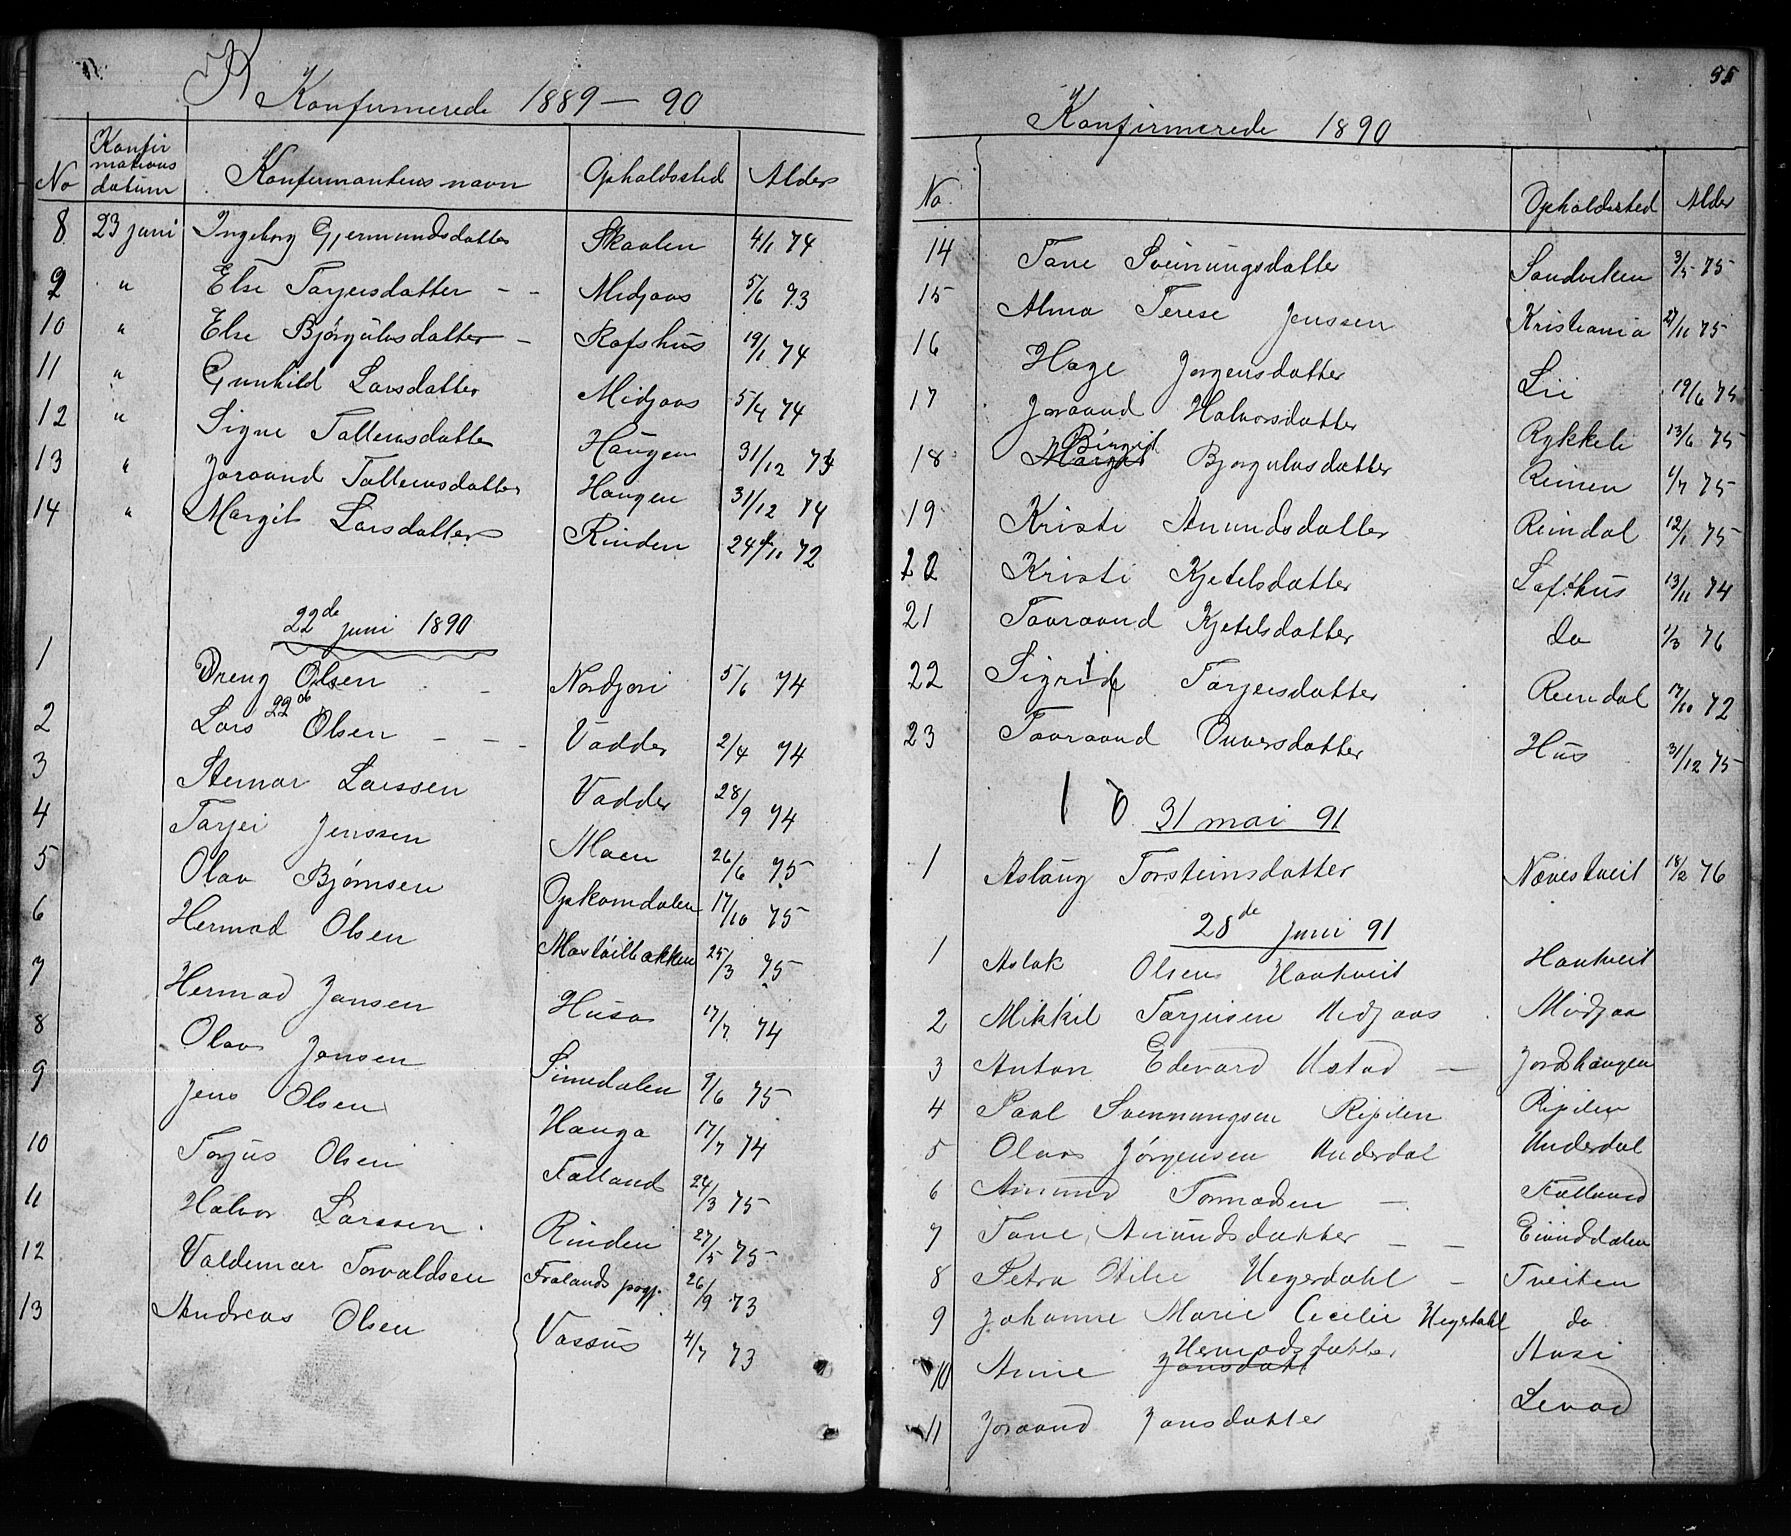 Konfirmerede 1889 — 90
No Konfirmations datum Konfirmantens navn Opholdssted Alder
8 23 juni Ingeborg Gjermundsdatter Skaalen 4/1 74
9 " Else Tarjeisdatter - - Midjaas 5/6 73
10 " Else Bjørgulvsdatter - Rofshus 19/1 74
11 " Gunhild Larsdatter Midjaas 5/4 74
12 " Signe Talleivsdatter Haugen 31/12 73
13 " Joraand Talleivsdatter Haugen 31/12 74
14 " Margit Larsdatter Rinden 24/11 72
22de juni 1890
1 Dreng Olsen - Nordjori 5/6 74
2 Lars Olsen - - - Vadder 2/4 74
3 Steinar Larssen Vadder 28/9 74
4 Tarjei Jenssen Moen 26/6 75
5 Olav Bjørnsen Opkomdalen 17/10 75
6 Hermod Olsen 25/3 75
7 Hermod Jansen Huso 17/7 74
8 Olav Jonsen Simedalen 9/6 75
9 Jens Olsen Hauga 17/7 74
10 Torjus Olsen Falland 24/3 75
11 Halvor Larssen Rinden 27/5 75
12 Valdemar Torvaldsen Frolands 26/9 73
13 Andreas Olsen Vassus 4/7 73
35
Konfirmerede 1890
No. Opholdssted Alder
14 Tone Sveinungsdatter Sandviken 3/5 75
15 Alma Terese Jenssen Kristiania 27/11 75
16 Hæge Jørgensdatter Lii 19/6 75
17 Joraand Halvorsdatter Rykkeli 13/6 75
18 Birgit Bjørgulvsdatter Reinen 1/7 75
19 Kristi Amundsdatter Reindal 12/1 75
20 Kristi Kjetelsdatter Lofthus 13/11 74
21 Taaraand Kjetelsdatter do 1/3 76
22 Sigrid Tarjeisdatter Reindal 17/10 72
23 Taaraand Onversdatter Hus 31/12 75
31 mai 91
1 Aslaug Torsteinsdatter Nævestveit 18/2 76
28de juni 91
1 Aslak Olsen Hautveit Hautveit
2 Mikkel Tarjeisen Midjaas Midjaa
3 Anton Edevard Ustad — Jordshaugen
4 Paal Svennungsen Ripilen Ripilen
5 Olav Jørgensen Underdal Underdal
6 Amund Tormodsen - Falland
7 Tone Amundsdatter - - Eivinddalen
8 Petra Otilie Hegerdahl - Tveiten
9 Johanne Marie Cecilie Hegerdahl do
10 Anne Hermodsdatter Aasi
11 Joraand Jonsdatter Levod